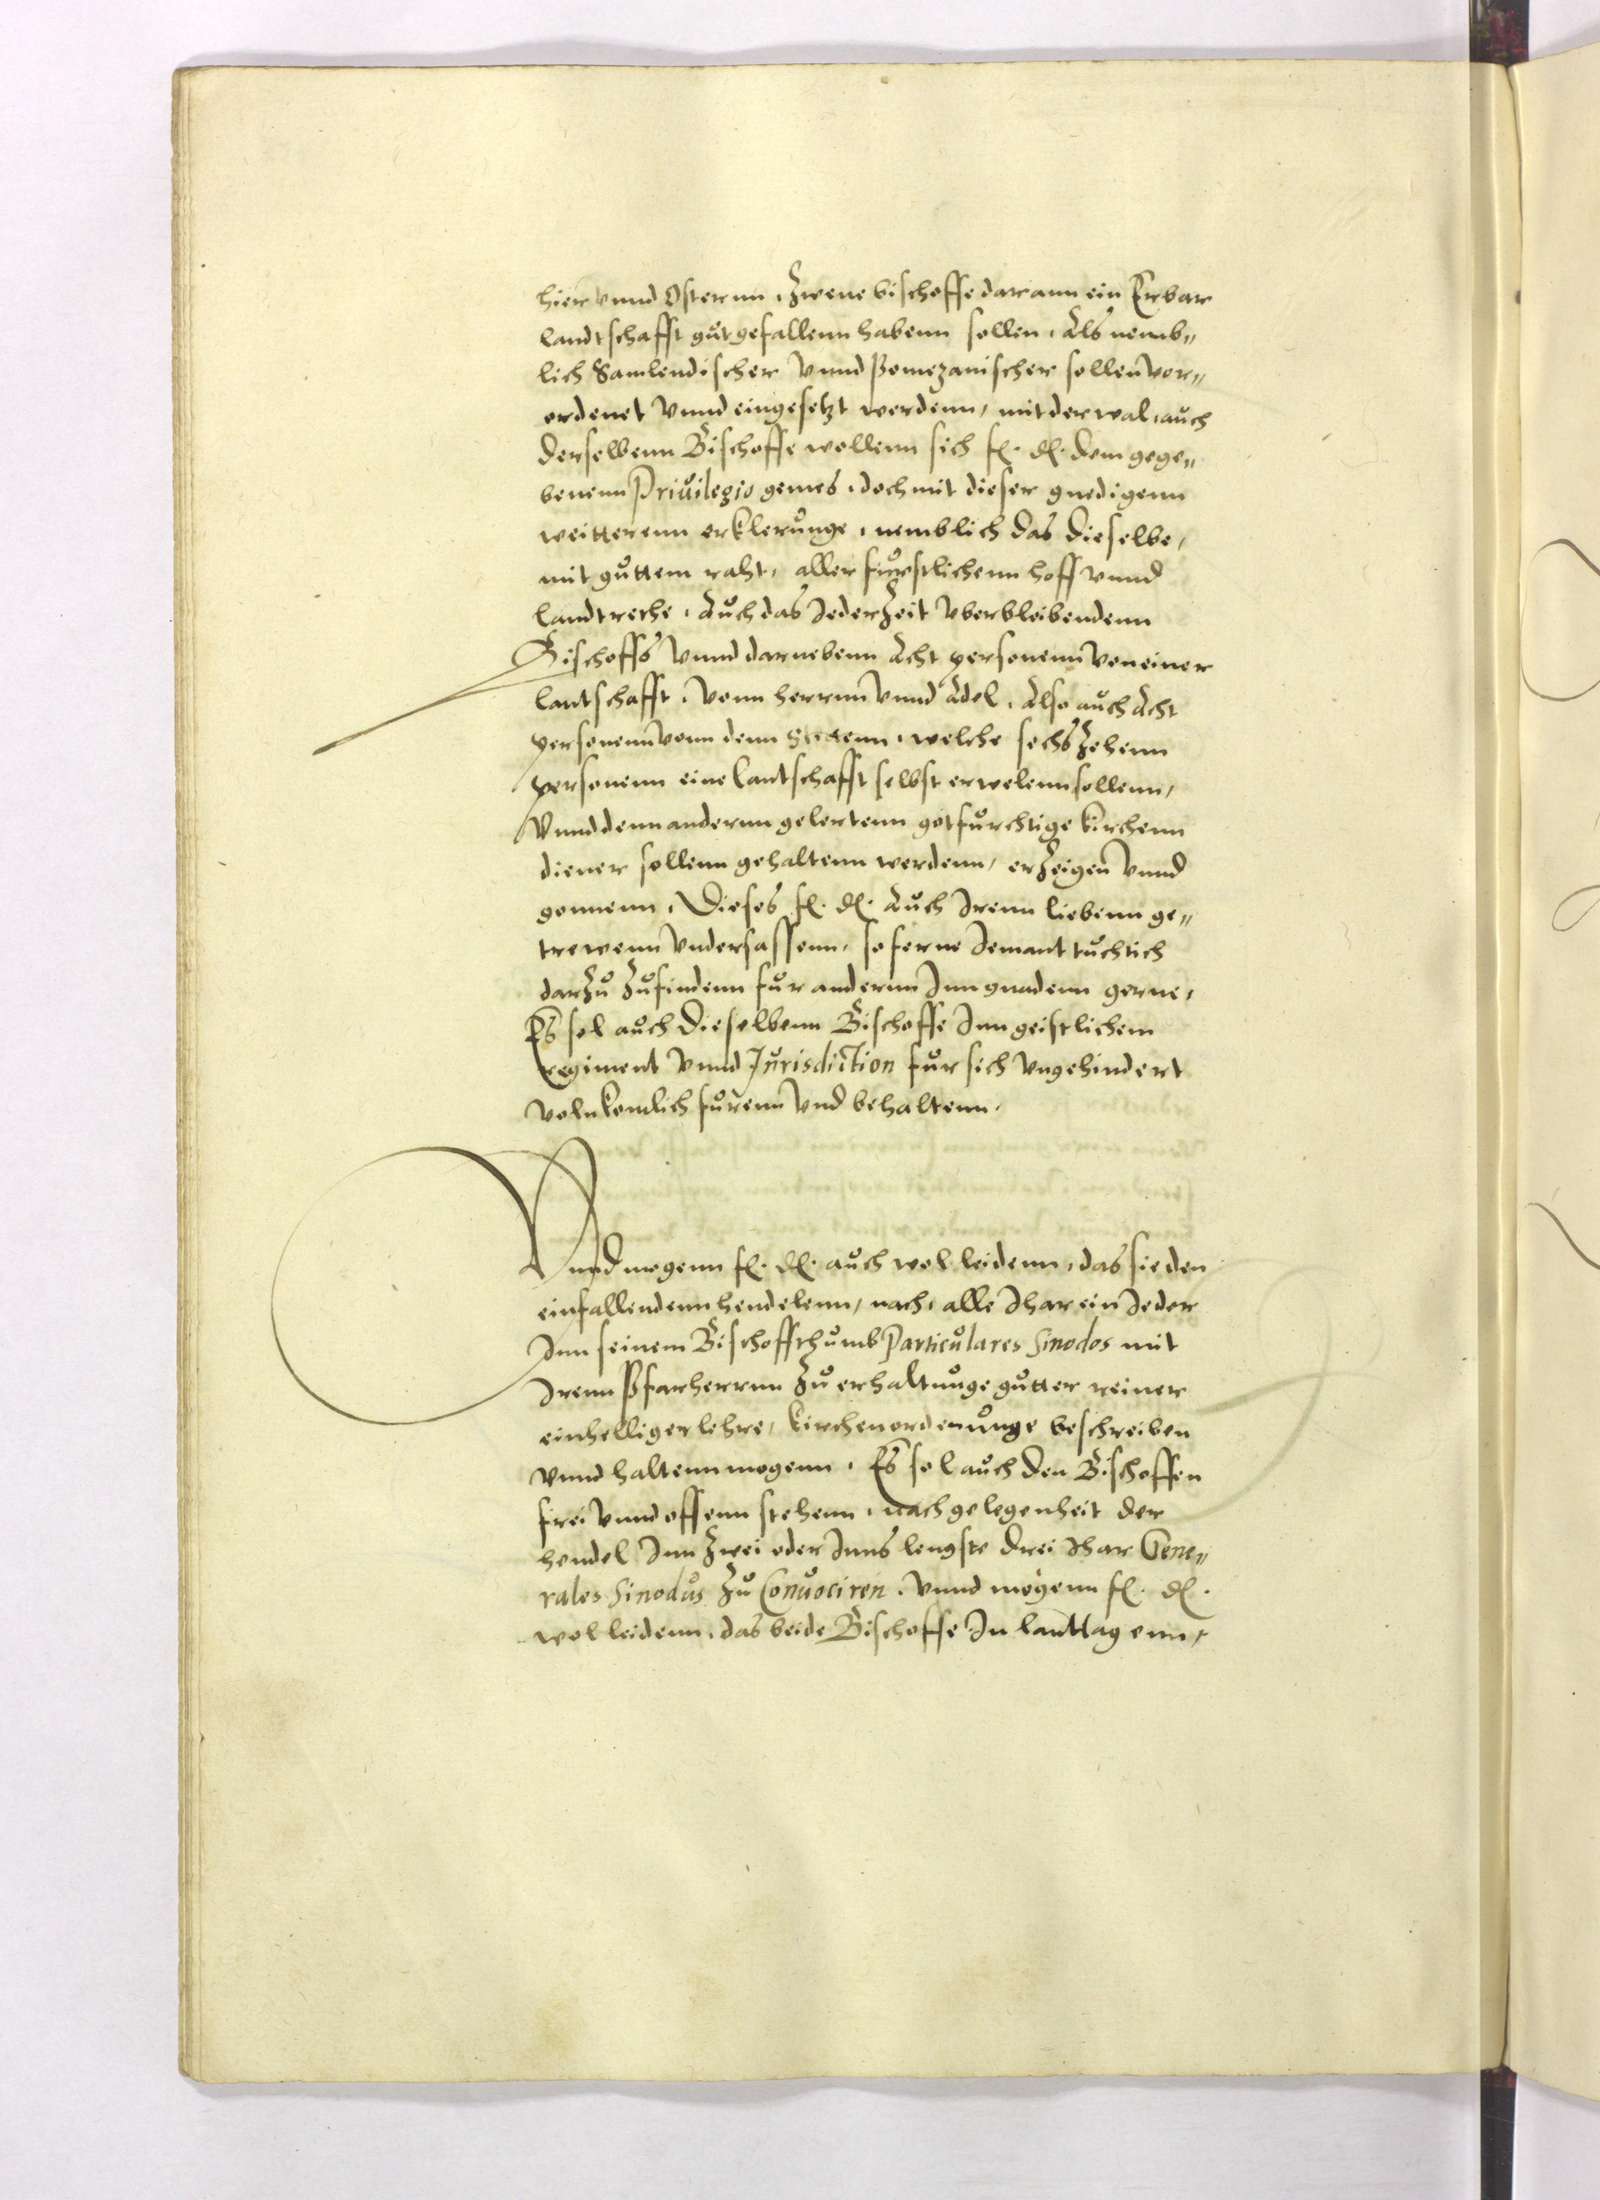 hier vnnd Osternn, Zwene bischoffe darann ein Erbar
landtschafft gut gefallenn habenn sollen, Als nemb„
lich Samlendischer vnnd Pomezanischer sollen vor„
ordenet vnnd eingesetzt werdenn, mit der wal, auch
derselbenn Bischoffe wollenn sich fl. dl. dem gege„
benenn Priuilegio gemes, doch mit dieser gnedigenn
weitterenn erklerunge, nemblich das dieselbe,
mit guttem raht, aller furstlichenn hoff vnnd
landtrethe, Auch das Jederzeit vberbleibendenn
Bischoffs vnnd darnebenn Acht personenn von einer
lantschafft, vonn herrnn vnnd Adel, Also auch Acht
personenn vonn denn Stettenn, welche sechszehenn
personenn eine lantschafft selbst erwelenn sollenn,
Vnnd denn andernn gelertenn gotfurchtige kirchenn
diener sollenn gehaltenn werdenn, erzeigen vnnd
gonnenn, Dieses fl. dl. Auch Jrenn liebenn ge„
trewenn vndersassenn, so ferne Jemant tuchtich
darzu zufindenn fur andernn Jnn gnadenn gerne,
Es sol auch dieselbenn Bischoffe Jnn geistlichem
regiment vnnd Jurisdiction fur sich vngehindert
volnkomlich furenn vnd behaltenn.
Vnnd mogenn fl. dl. auch wol leidenn, das sie den
einfallendenn hendelenn, nach, alle Jhar ein Jeder
Jnn seinem Bischoffthumb Particulares Sinodos mit
Jrenn Pfarherrnn zu erhaltunge gutter reiner
einhelliger lehre, kirchenordenunge beschreiben
vnnd haltenn mogenn, Es sol auch den Bischoffen
frei vnnd offenn stehenn, nach gelegenheit der
hendel Jnn zwei oder Jnns lengste drei Jhar Gene„
rales Sinodus zu Conuociren, vnnd mogenn fl. dl.
wol leidenn, das beide Bischoffe Jn lanttagenn,